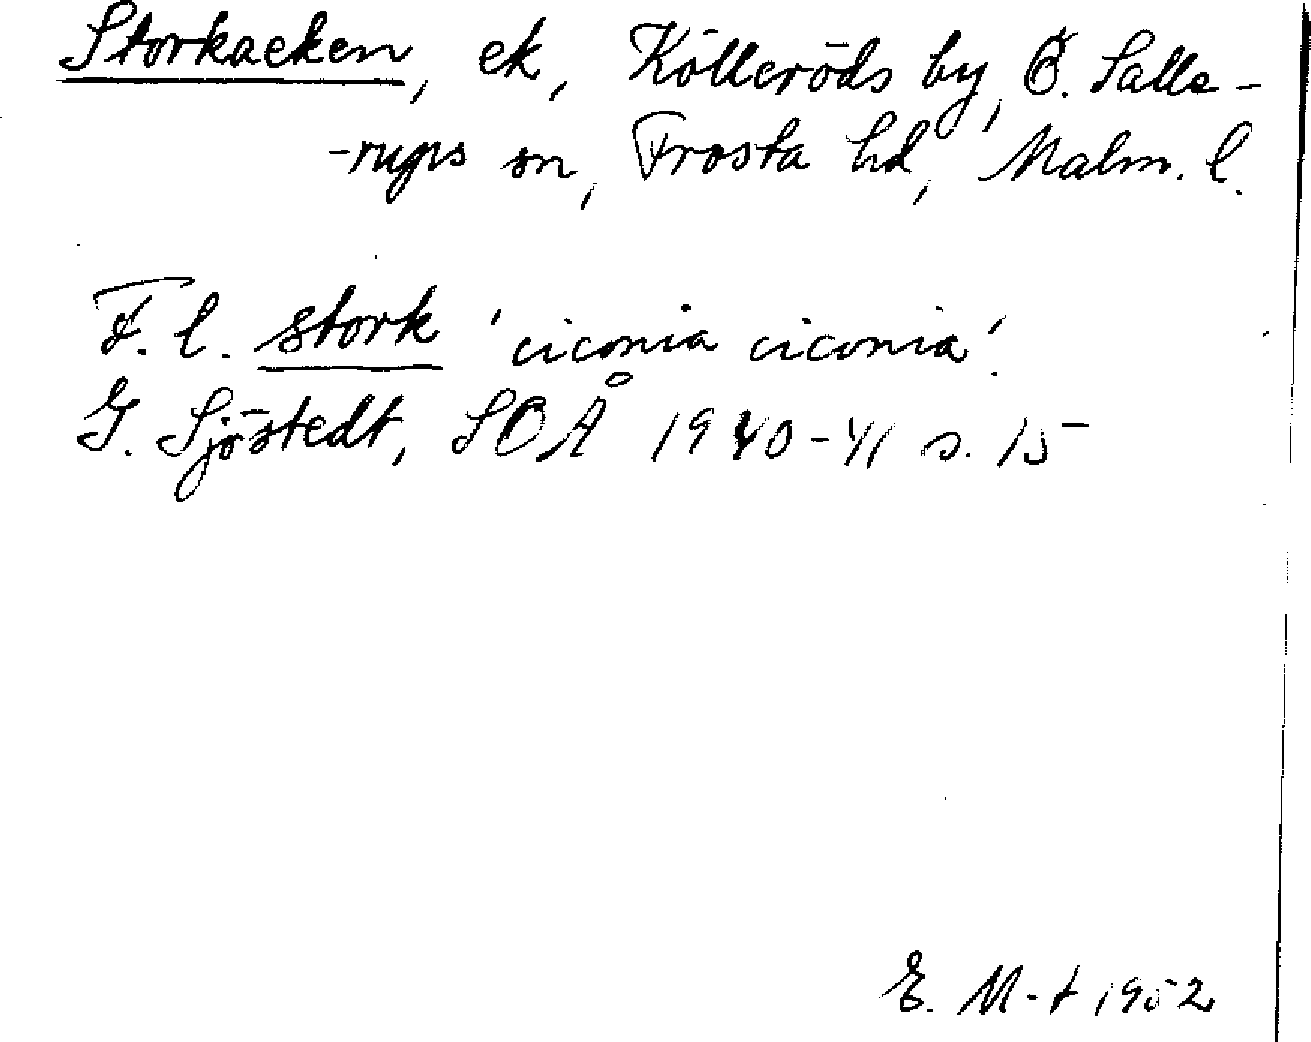 Storkaeken, ek, Kölleröds by, Ö. Salle-
-rups sn, Frosta hd, Malm. l.
F. l. stork 'ciconia ciconia'.
G. Sjöstedt, SOÅ 1940-41 s. 15
E. M-t 1952